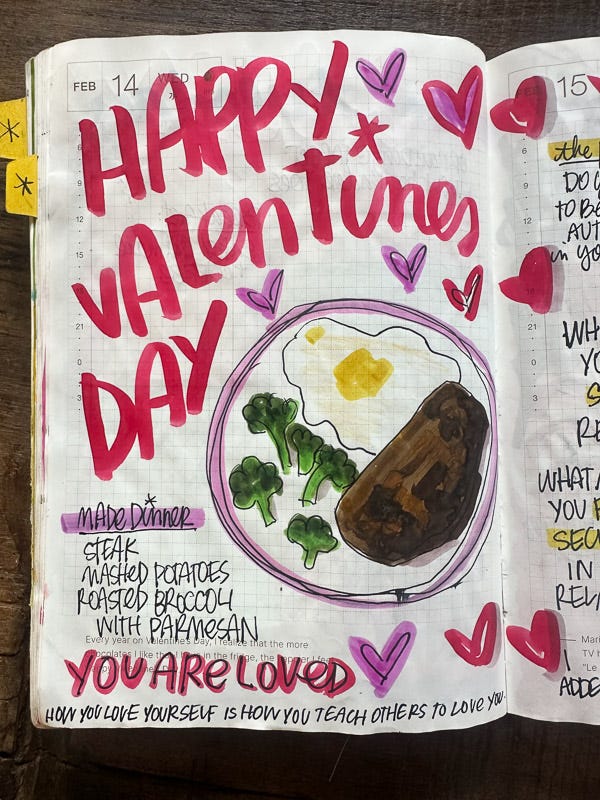 FEB 14 WED
HAPPY
VALENTINES
DAY
MADE DINNER
STEAK
MASHED POTATOES
ROASTED BROCCOLI
WITH PARMESAN
Every year on Valentine's Day, I realize that the more
I like in the fridge, the
YOU ARE LOVED
HOW YOU LOVE YOURSELF IS HOW YOU TEACH OTHERS TO LOVE YOU.
15
the
DO
TO BE
IN
YOU
IN
Mari
TV
"Le
I